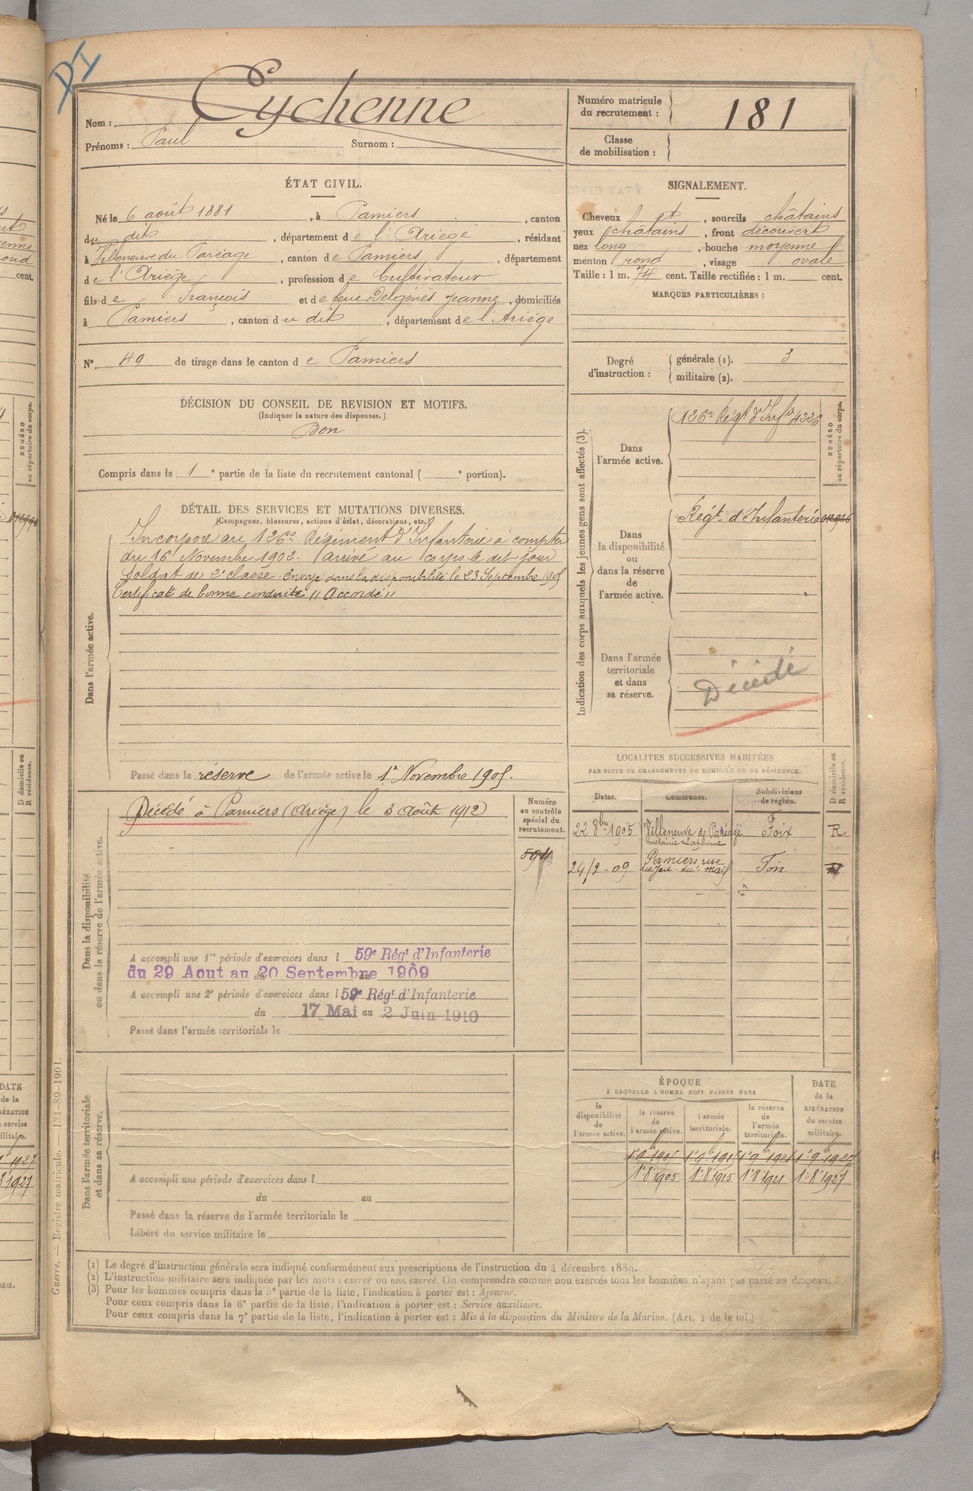 DI
Nom : Eychenne
Prénoms : Paul Surnom :
Numéro matricule
du recrutement : 181
Classe
de mobilisation :
ÉTAT CIVIL.
Né le 6 août 1881, à Pamiers, canton
du dit, département de l'Ariège, résidant
à Villeneuve du Paréage, canton de Pamiers, département
de l'Ariège, profession de Cultivateur
fils de François et de feue Jeanne, domiciliés
à Pamiers, canton du dit, département de l'Ariège
N° 49 de tirage dans le canton de Pamiers
SIGNALEMENT.
Cheveux et, sourcils châtains
yeux châtains, front découvert
nez long, bouche moyenne
menton rond, visage ovale
Taille : 1 m. 74 cent. Taille rectifiée : 1 m. cent.
MARQUES PARTICULIÈRES :
Degré
d'instruction :
générale (1). 3
militaire (2).
DÉCISION DU CONSEIL DE REVISION ET MOTIFS.
(Indiquer la nature des dispenses.)
Bon
Compris dans la 1e partie de la liste du recrutement cantonal ( e portion).
DÉTAIL DES SERVICES ET MUTATIONS DIVERSES.
(Campagnes, blessures, actions d'éclat, décorations, etc.)
Dans l'armée active.
Incorporé au 126e Régiment d'Infanterie à compter
du 16 Novembre 1902. Arrivé au corps le dit jour
Soldat de 2e classe. Envoyé dans la disponibilité le 23 Septembre 1905
Certificat de bonne conduite "Accordé"
Passé dans la réserve de l'armée active le 1er Novembre 1905.
Indication des corps auxquels les jeunes gens sont affectés (3).
NUMÉRO
au répertoire du corps.
Dans
l'armée active.
126e Régt d'Infie 4226
Dans
la disponibilité
ou
dans la réserve de
l'armée active.
Régt d'Infanterie
Dans l'armée
territoriale
et dans
sa réserve.
Décédé
Dans la disponibilité
ou dans la réserve de l'armée active.
Décédé à Pamiers (Ariège) le 3 Août 1912
Numéro
au contrôle
spécial du
recrutement.
A accompli une 1re période d'exercices dans l 59e Régt d'Infanterie
du 29 Aout au 20 Septembre 1909
A accompli une 2e période d'exercices dans l 59e Régt d'Infanterie
du 17 Mai au 2 Juin 1910
Passé dans l'armée territoriale le
LOCALITÉS SUCCESSIVES HABITÉES
PAR SUITE DE CHANGEMENTS DE DOMICILE OU DE RÉSIDENCE.
Dates. Communes. Subdivisions
de région.
D domicile ou
R résidence.
22 8bre 1905 Villeneuve de Paréage Foix R
24/2-09 Pamiers rue Foix
du Jeu du Mail
Dans l'armée territoriale
et dans sa réserve.
A accompli une période d'exercices dans l
du au
Passé dans la réserve de l'armée territoriale le
Libéré du service militaire le
ÉPOQUE
À LAQUELLE L'HOMME DOIT PASSER DANS
DATE
de la
LIBÉRATION
du service
militaire.
la
disponibilité
de
l'armée active.
la réserve
de
l'armée active.
l'armée
territoriale.
la réserve
de
l'armée
territoriale.
1-8 1905 1-8 1915 1-8 1921 1-8 1927
(1) Le degré d'instruction générale sera indiqué conformément aux prescriptions de l'instruction du 4 décembre 1889.
(2) L'instruction militaire sera indiquée par les mots : exercé ou non exercé. On comprendra comme non exercés tous les hommes n'ayant pas passé au drapeau.
(3) Pour les hommes compris dans la 5e partie de la liste, l'indication à porter est : Ajourné.
Pour ceux compris dans la 6e partie de la liste, l'indication à porter est : Service auxiliaire.
Pour ceux compris dans la 7e partie de la liste, l'indication à porter est : Mis à la disposition du Ministre de la Marine. (Art. 4 de la loi.)
Guerre. — Registre matricule. — 131-89-1901.